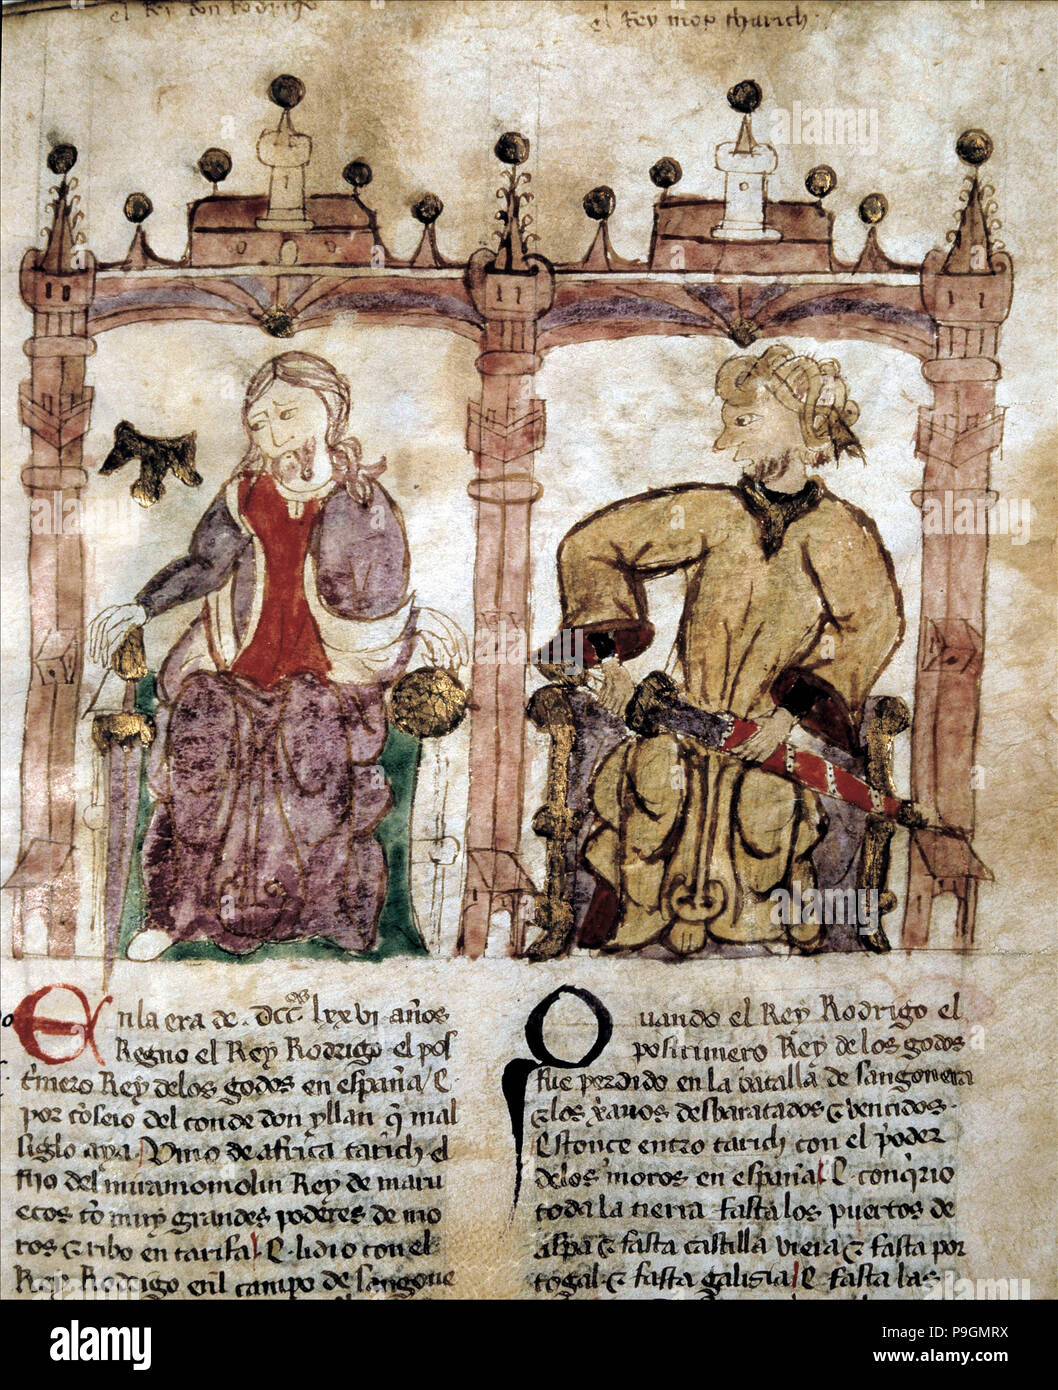 el Rei don Rodrigo
el Rey mor tharich
En la era de .Dccos lxxvi años
Regno el Rey Rodrigo el pos
Rey delos godos en españa
por del conde don yllan q mal
siglo aya Vino de africa tarich el
fijo del miramomolin Rey de maru
ecos muy grandes poderes de mo
ros & ribo en tarifa E lidio con el
Rey Rodrigo enl campo de sangone
Quando el Rey Rodrigo el
postrimero Rey delos godos
fue perdido en la batalla de sangonera
& los xanos desbaratados & vencidos.
Estonce entro tarich con el poder
delos moros en españa E conqrio
toda la tierra fasta los puertos de
aspa & fasta castilla vieia & fasta por
togal & fasta galisia E fasta las
alamy
alamy
Image ID: P9GMRX
www.alamy.com